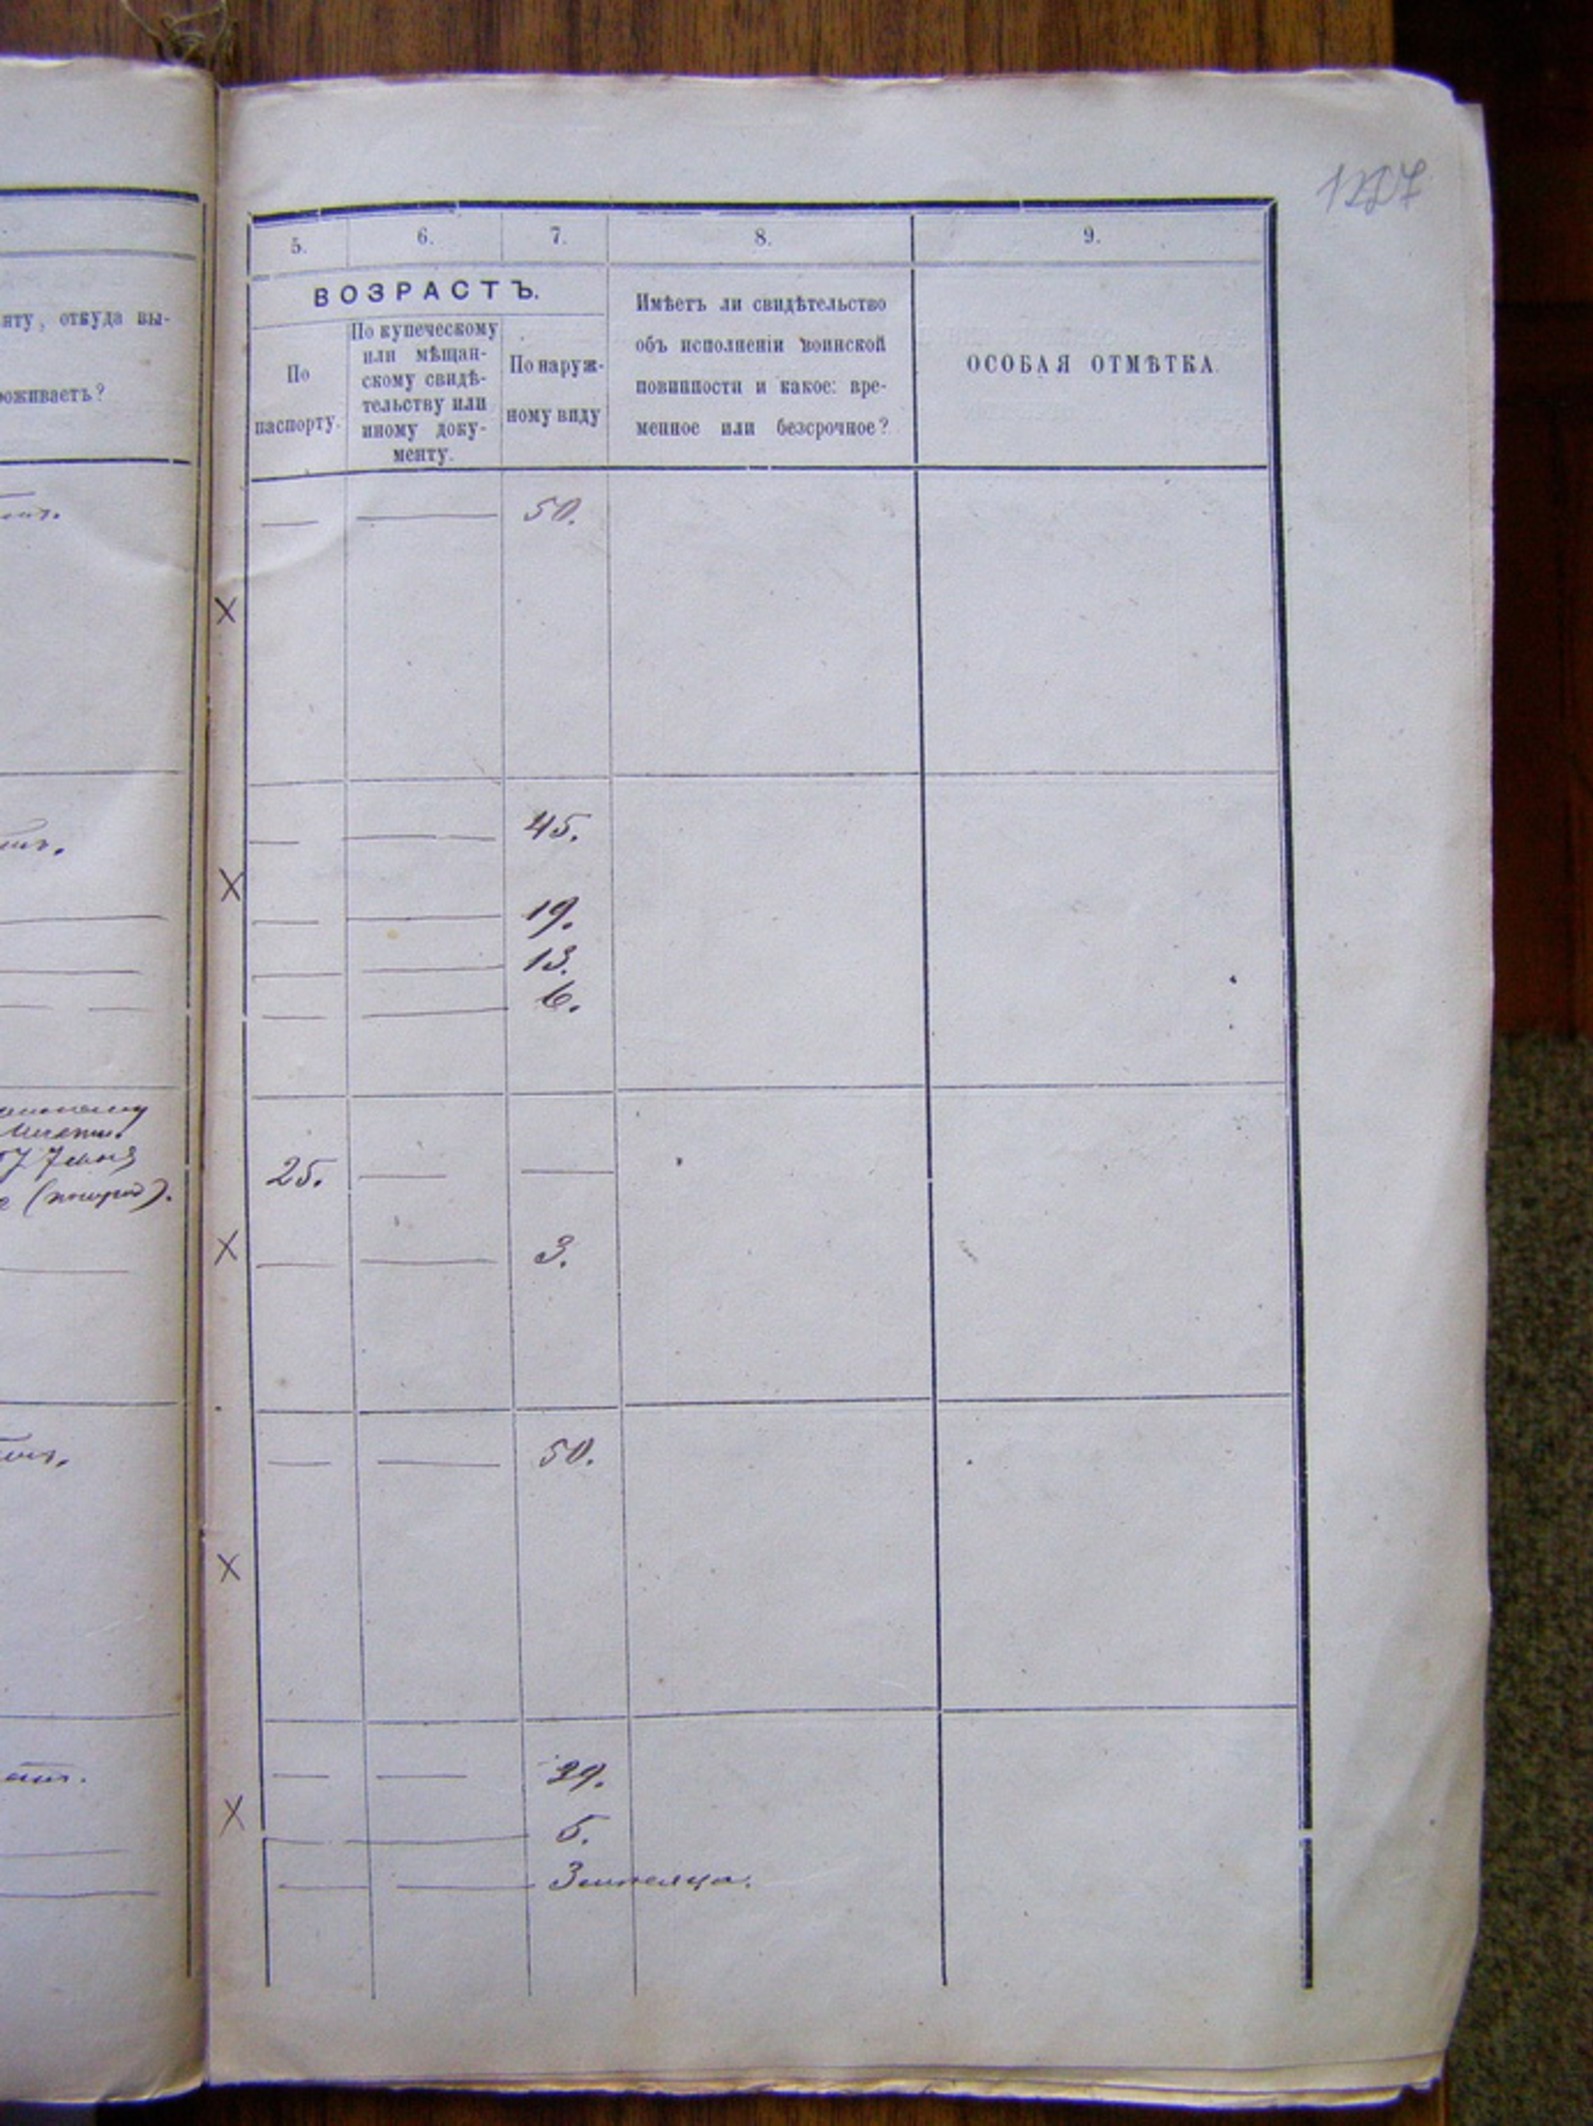 1207
5. 6. 7. 8. 9.
яту, откуда вы-
роживаетъ?
ВОЗРАСТЪ.
По
паспорту.
По купеческому
или мѣщан-
скому свидѣ-
тельству или
иному доку-
менту.
По наруж-
ному виду
Имѣетъ ли свидѣтельство
объ исполненіи воинской
повинности и какое: вре-
менное или безсрочное?
ОСОБАЯ ОТМѢТКА.
— — 50.
X
— — 45.
X
— — 19.
— — 13.
— — 6.
25. — —
X
— — 3.
— — 50.
X
— — 39.
X
— — 5.
— — 3 мѣсяца.